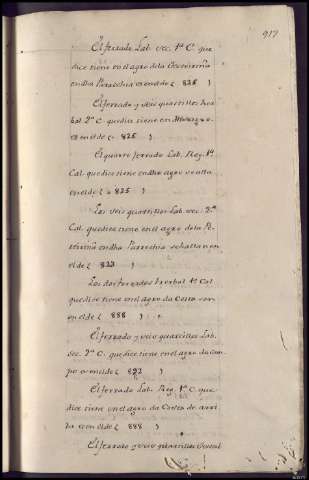 917
El ferrado Lab. sec. 1ª C. que
dice tiene en el agro de la
en dha Parrochia es en el de ( 825 )
El ferrado y seis quartillos
2ª C. que dice tiene en
es en el de ( 825 )
El quarto ferrado Lab. Reg. 1ª
Cal. que dice tiene en dho agro se alla
en el de ( 825 )
Los seis quartillos Lab. sec. 2ª
Cal. que dice tiene en el agro de la
en dha Parrochia se hallan en
el de ( 823 )
Los dos ferrados 1ª Cal.
que dice tiene en el agro da Costa son
en el de ( 888 )
El ferrado y seis quartillos Lab.
sec. 2ª C. que dice tiene en el agro da cam
po es en el de ( 822 )
El ferrado Lab. Reg. 1ª C. que
dice tiene en el agro da Costa de arri
ba es en el de ( 888 )
El ferrado y seis quartillos